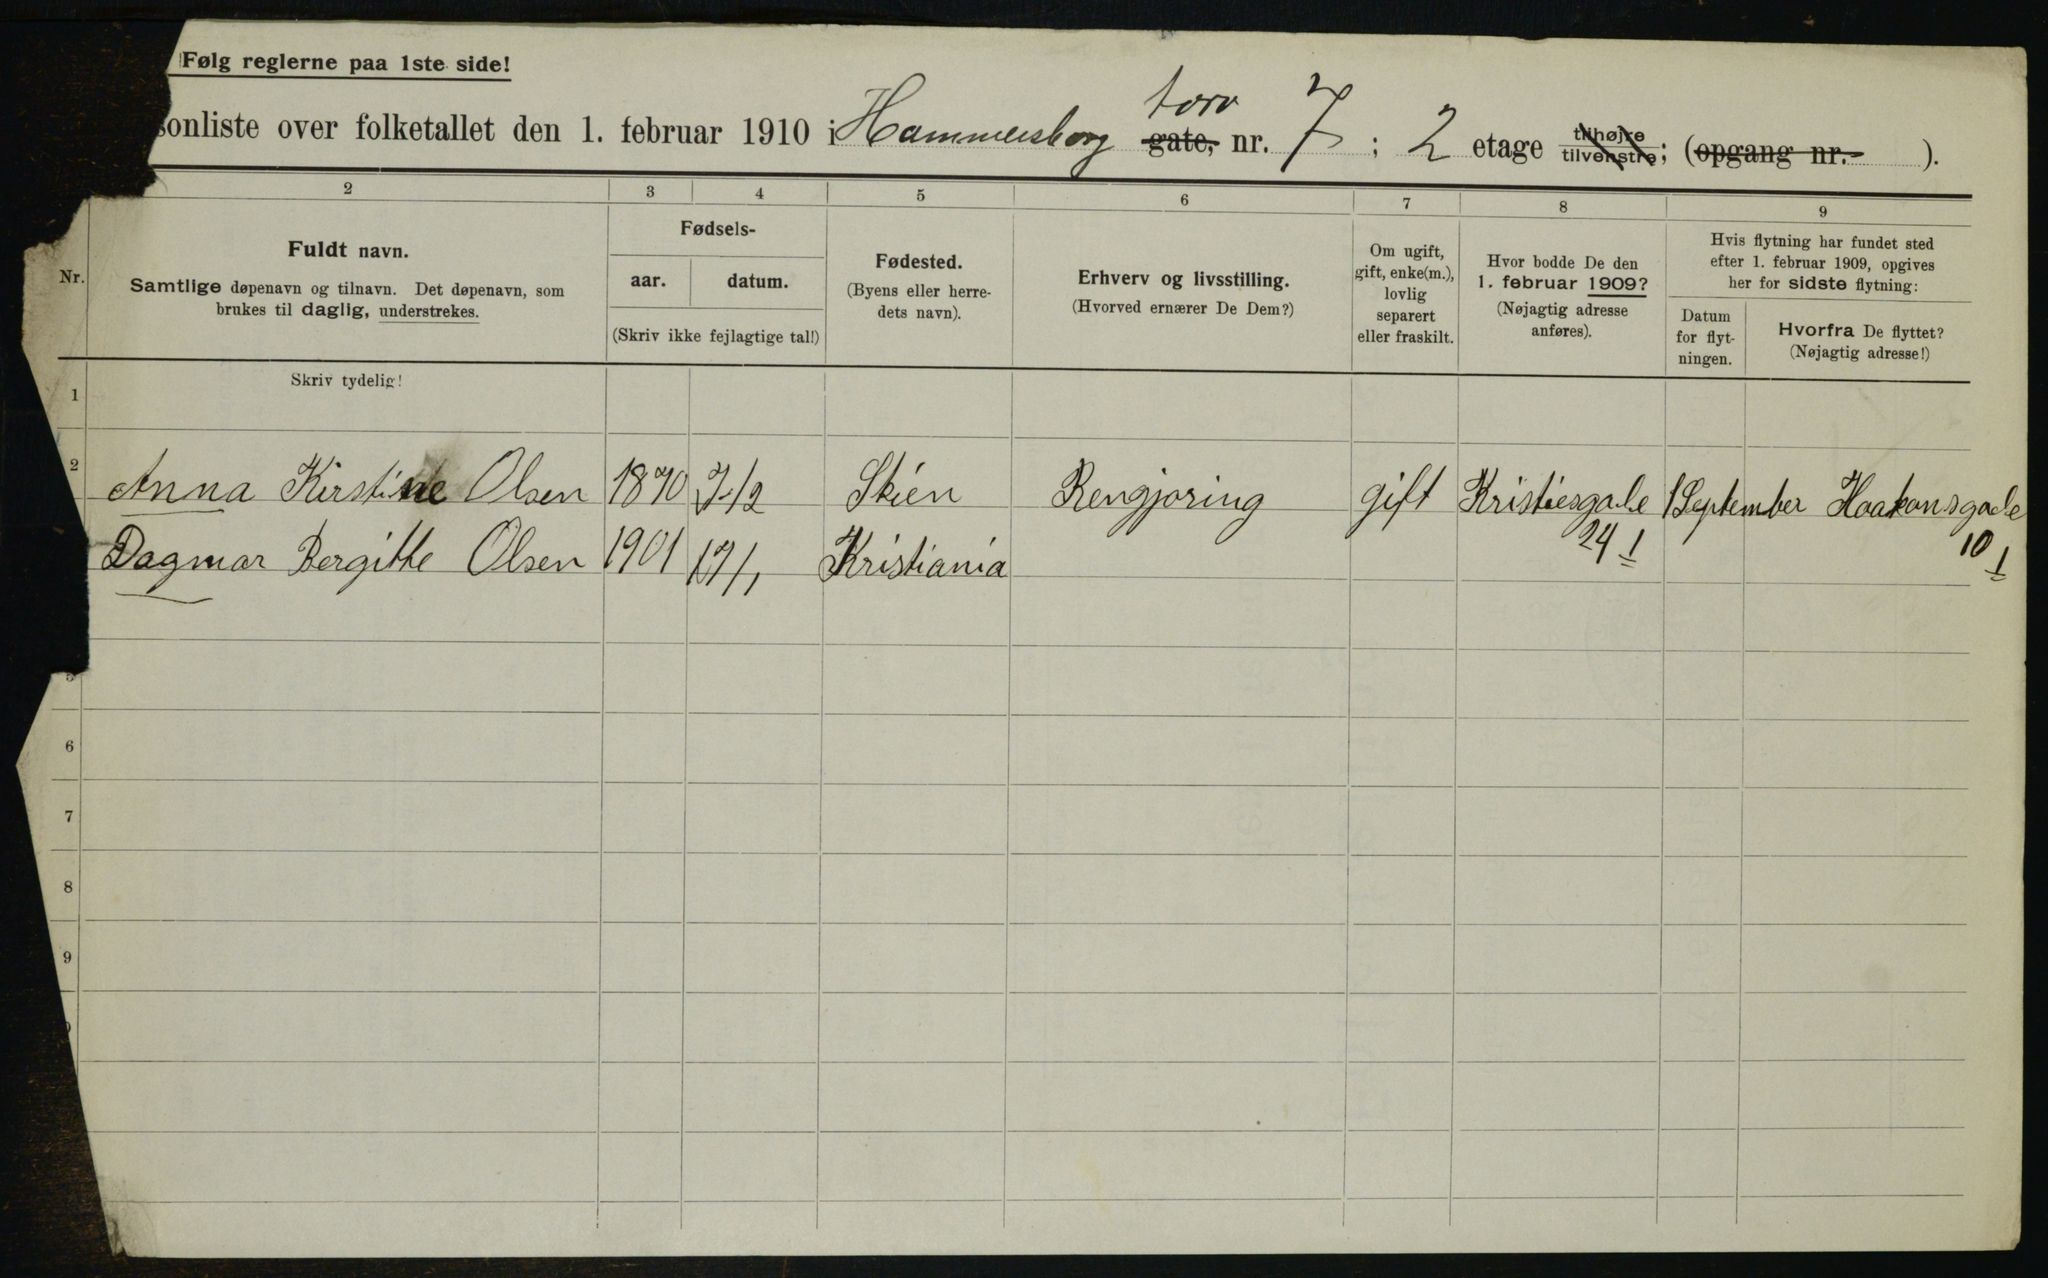 Følg reglerne paa 1ste side!
sonliste over folketallet den 1. februar 1910 i Hammersborg gate, torv nr. 7 ; 2 etage tilhøjre tilvenstre; (opgang nr. ).
2 3 4 5 6 7 8 9
Nr.
Fuldt navn.
Samtlige døpenavn og tilnavn. Det døpenavn, som
brukes til daglig, understrekes.
Fødsels-
aar. datum.
(Skriv ikke fejlagtige tal!)
Fødested.
(Byens eller herre-
dets navn).
Erhverv og livsstilling.
(Hvorved ernærer De Dem?)
Om ugift,
gift, enke(m.),
lovlig
separert
eller fraskilt.
Hvor bodde De den
1. februar 1909?
(Nøjagtig adresse
anføres).
Hvis flytning har fundet sted
efter 1. februar 1909, opgives
her for sidste flytning:
Datum
for flyt-
ningen.
Hvorfra De flyttet?
(Nøjagtig adresse!)
Skriv tydelig!
1
2 Anna Kirstine Olsen 1870 7/12 Skien Rengjøring gift Kristiesgade 1 September Haakonsgade
24 1 10 1
Dagmar Bergitte Olsen 1901 17/1 Kristiania
5
6
7
8
9